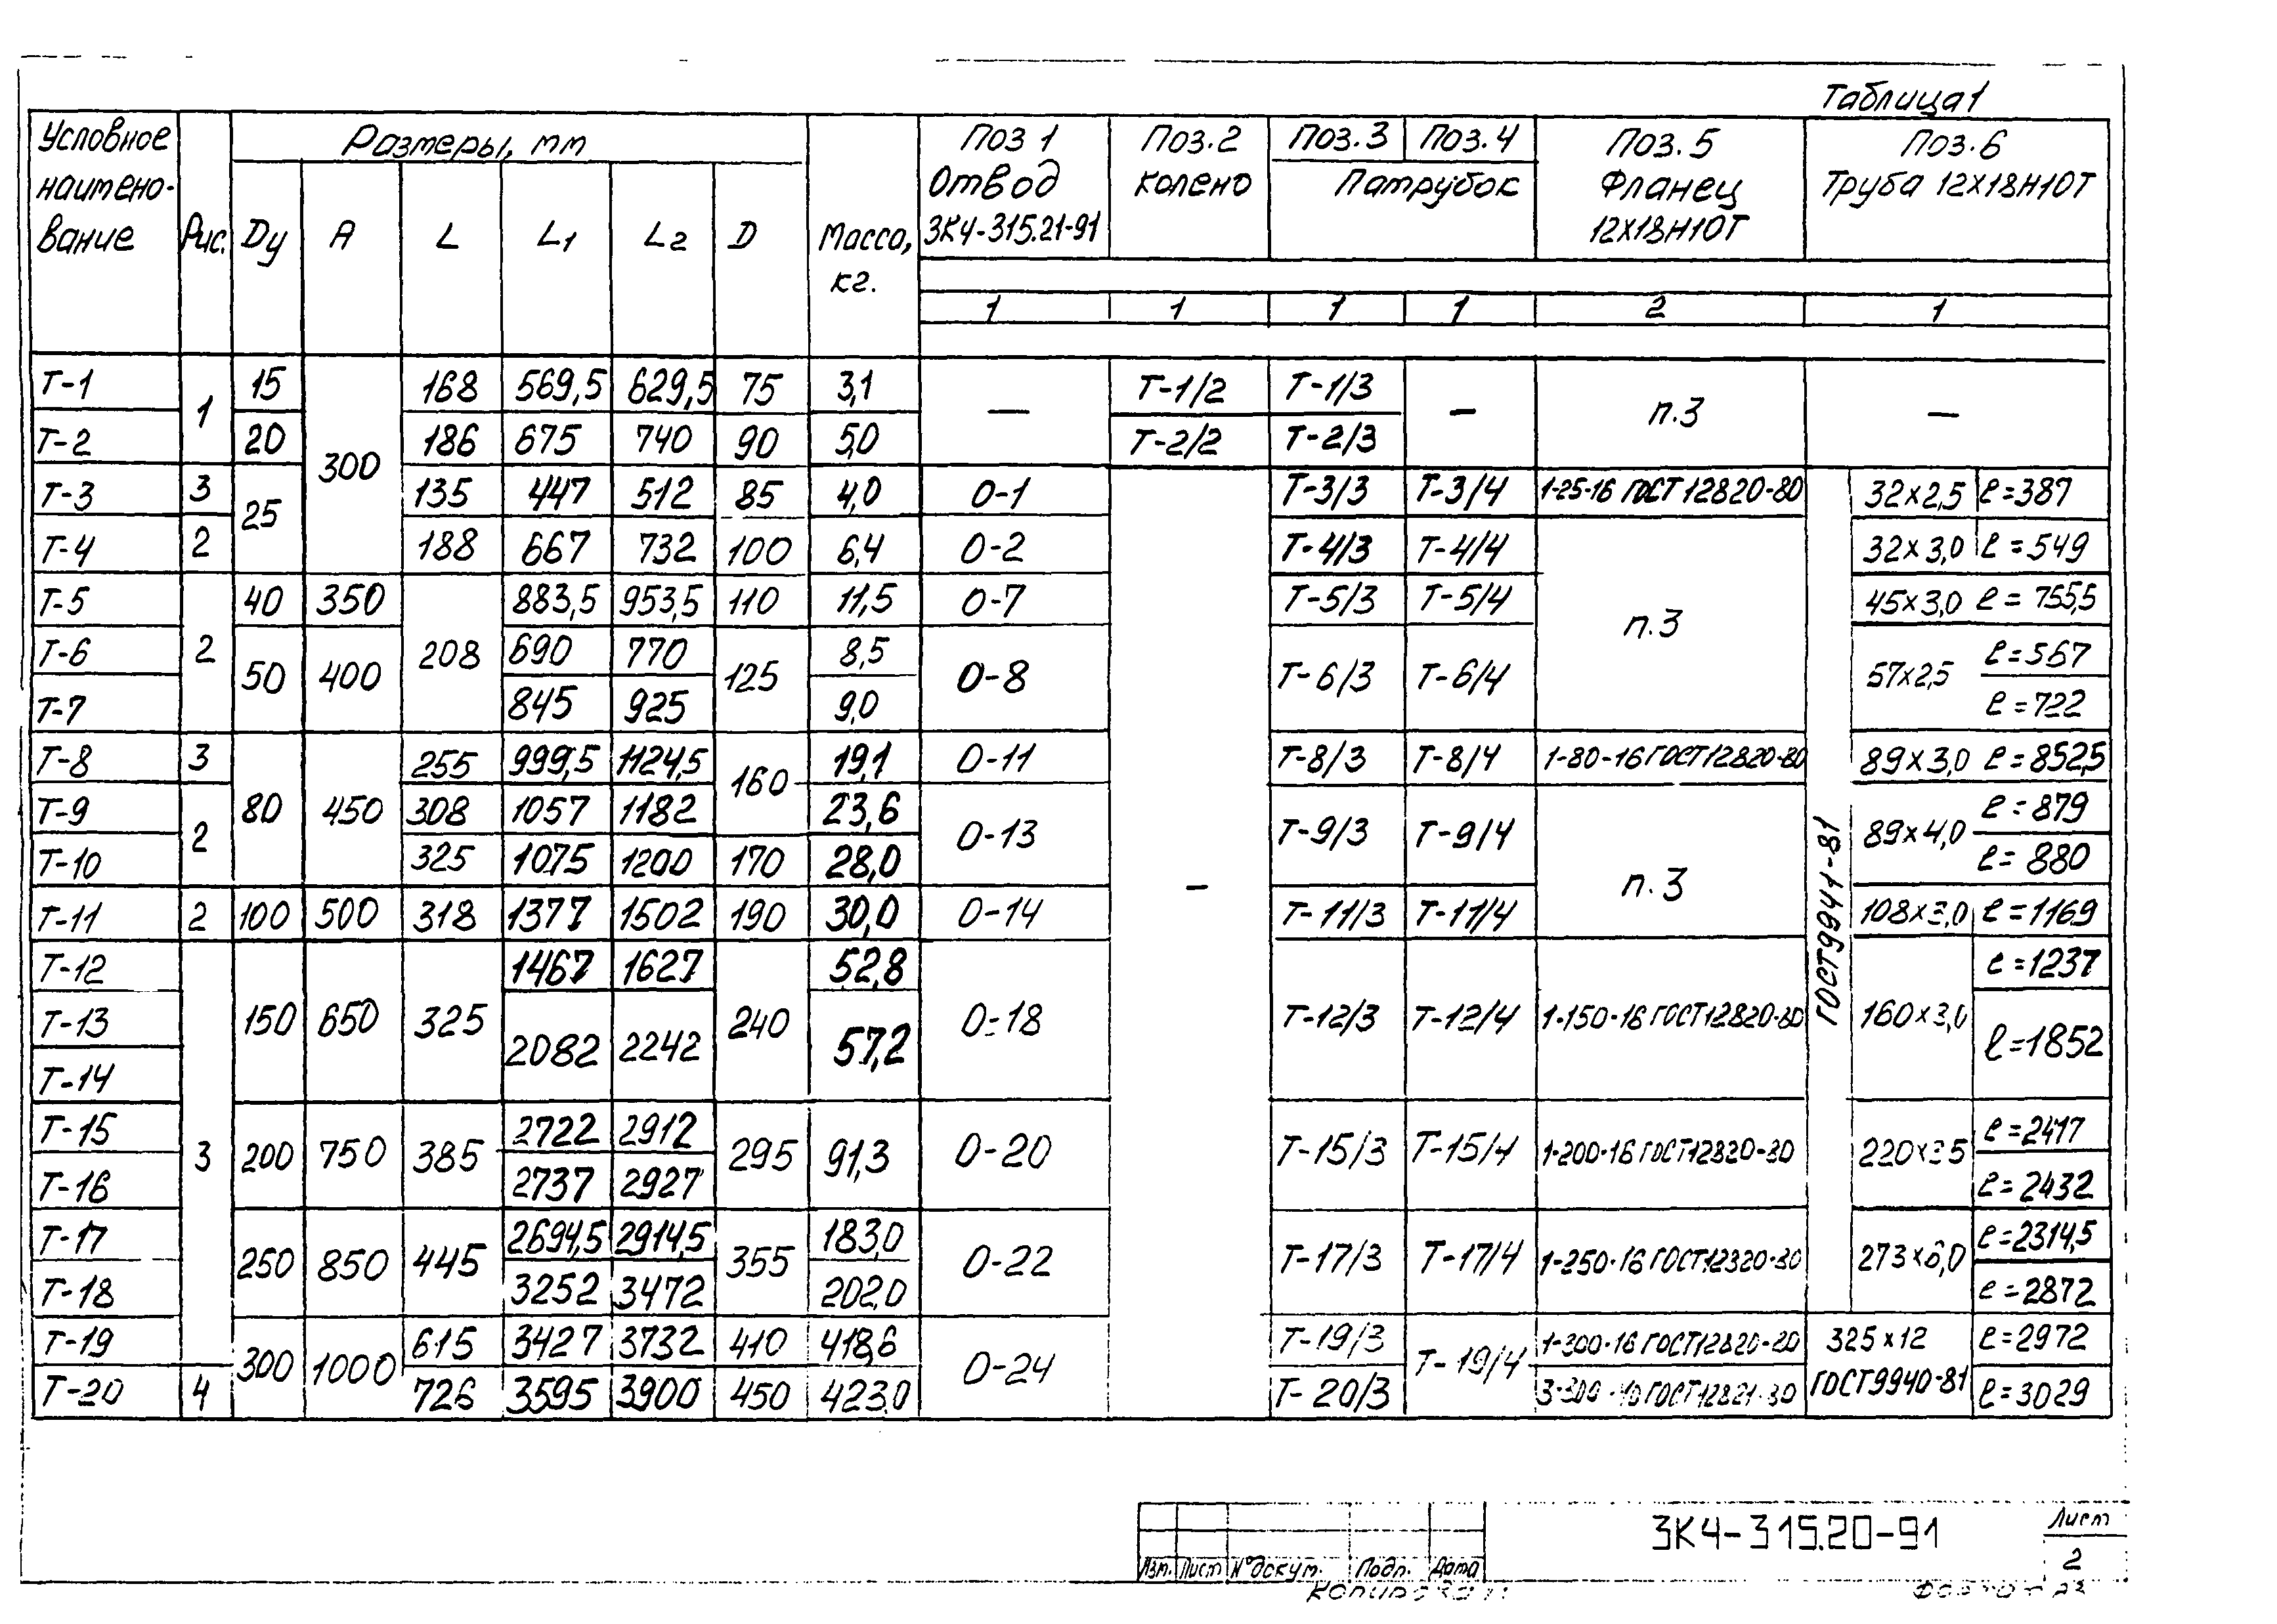 Таблица 1
Условное наимено-вание Рис. Размеры, мм Масса, кг. Поз 1 Отвод ЗК4-315.21-91 Поз.2 Колено Поз.3 Поз.4 Патрубок Поз.5 Фланец 12Х18Н10Т Поз.6 Труба 12Х18Н10Т
Ду А L L1 L2 D
1 1 1 1 2 1
Т-1 1 15 300 168 569,5 629,5 75 3,1 — Т-1/2 Т-1/3 — п.3 —
Т-2 20 186 675 740 90 5,0 Т-2/2 Т-2/3
Т-3 3 25 135 447 512 85 4,0 О-1 — Т-3/3 Т-3/4 1-25-16 ГОСТ 12820-80 ГОСТ 9941-81 32×2,5 ℓ=387
Т-4 2 188 667 732 100 6,4 О-2 Т-4/3 Т-4/4 п.3 32×3,0 ℓ=549
Т-5 2 40 350 208 883,5 953,5 110 11,5 О-7 Т-5/3 Т-5/4 45×3,0 ℓ=755,5
Т-6 50 400 690 770 125 8,5 О-8 Т-6/3 Т-6/4 57×2,5 ℓ=567
Т-7 845 925 9,0 ℓ=722
Т-8 3 80 450 255 999,5 1124,5 160 19,1 О-11 Т-8/3 Т-8/4 1-80-16 ГОСТ 12820-80 89×3,0 ℓ=852,5
Т-9 2 308 1057 1182 23,6 О-13 Т-9/3 Т-9/4 п.3 89×4,0 ℓ=879
Т-10 325 1075 1200 170 28,0 ℓ=880
Т-11 2 100 500 318 1377 1502 190 30,0 О-14 Т-11/3 Т-11/4 108×3,0 ℓ=1169
Т-12 3 150 650 325 1467 1627 240 52,8 О-18 Т-12/3 Т-12/4 1-150-16 ГОСТ 12820-80 160×3,0 ℓ=1237
Т-13 2082 2242 57,2 ℓ=1852
Т-14
Т-15 200 750 385 2722 2912 295 91,3 О-20 Т-15/3 Т-15/4 1-200-16 ГОСТ 12820-80 220×3,5 ℓ=2417
Т-16 2737 2927 ℓ=2432
Т-17 250 850 445 2694,5 2914,5 355 183,0 О-22 Т-17/3 Т-17/4 1-250-16 ГОСТ 12820-80 ℓ=2314,5
Т-18 3252 3472 202,0 ℓ=2872
Т-19 300 1000 615 3427 3732 410 418,6 О-24 Т-19/3 Т-19/4 1-300-16 ГОСТ 12820-80 325×12 ГОСТ 9940-81 ℓ=2972
Т-20 4 726 3595 3900 450 423,0 Т-20/3 ГОСТ 12821-80 ℓ=3029
ЗК4-315.20-91
Лист
2
Изм. Лист № докум. Подп. Дата
Копировал:
Формат А3